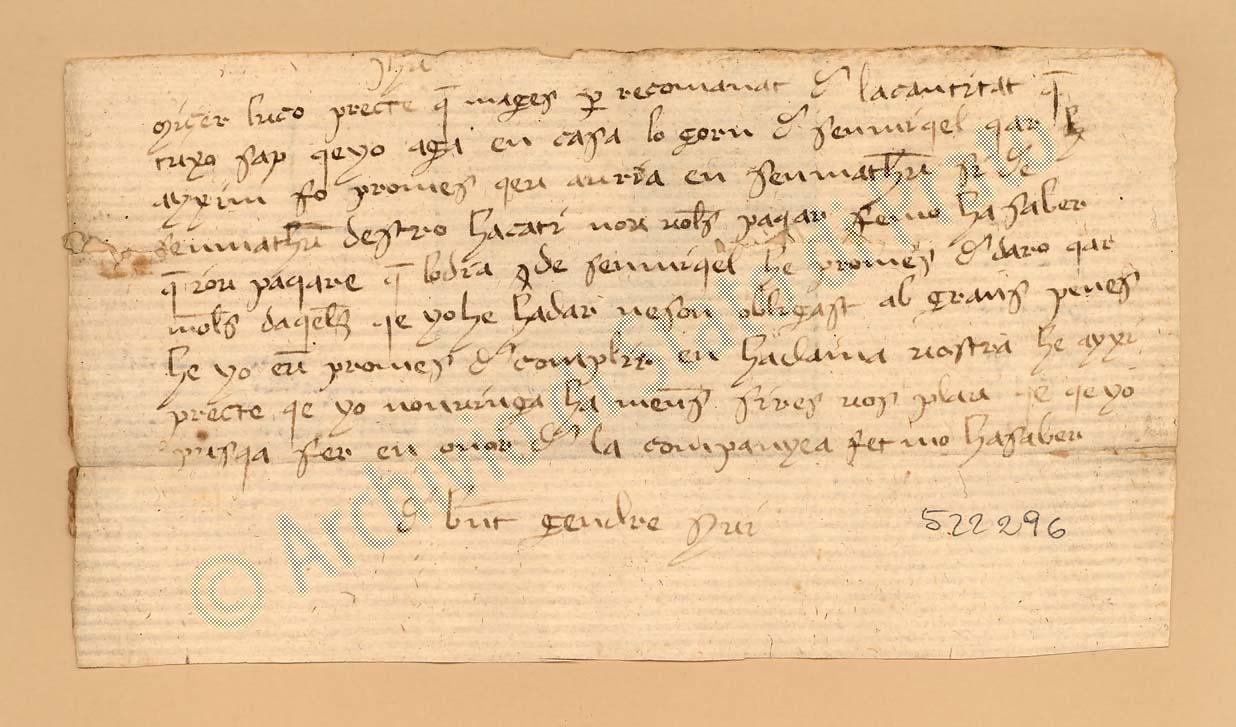 Jhu
Miçer luco precte q̄ mages p recomanat đ lacantitat q̄
tuxo sap qeyo aga en casa lo gorn đ senmiqel qar
ayxim fo promes qem auria en senmatheu si de
senmatheu destro hacati non vols pagar femo hasaber
q̄ pagare q̄ lodia de senmiqel he promes đ daro qar
mols daqels qe yohe hadar neson obligast ab grans penes
he yo em promes đ complir en hadaina vostra he ayxi
precte qe yo nonvinga ha mens sires vos plau qe qeyo
pusqa fer en onor đ la companyea fetmo hasaber
đ bnt gendre
522296
© Archivio di Stato di Prato